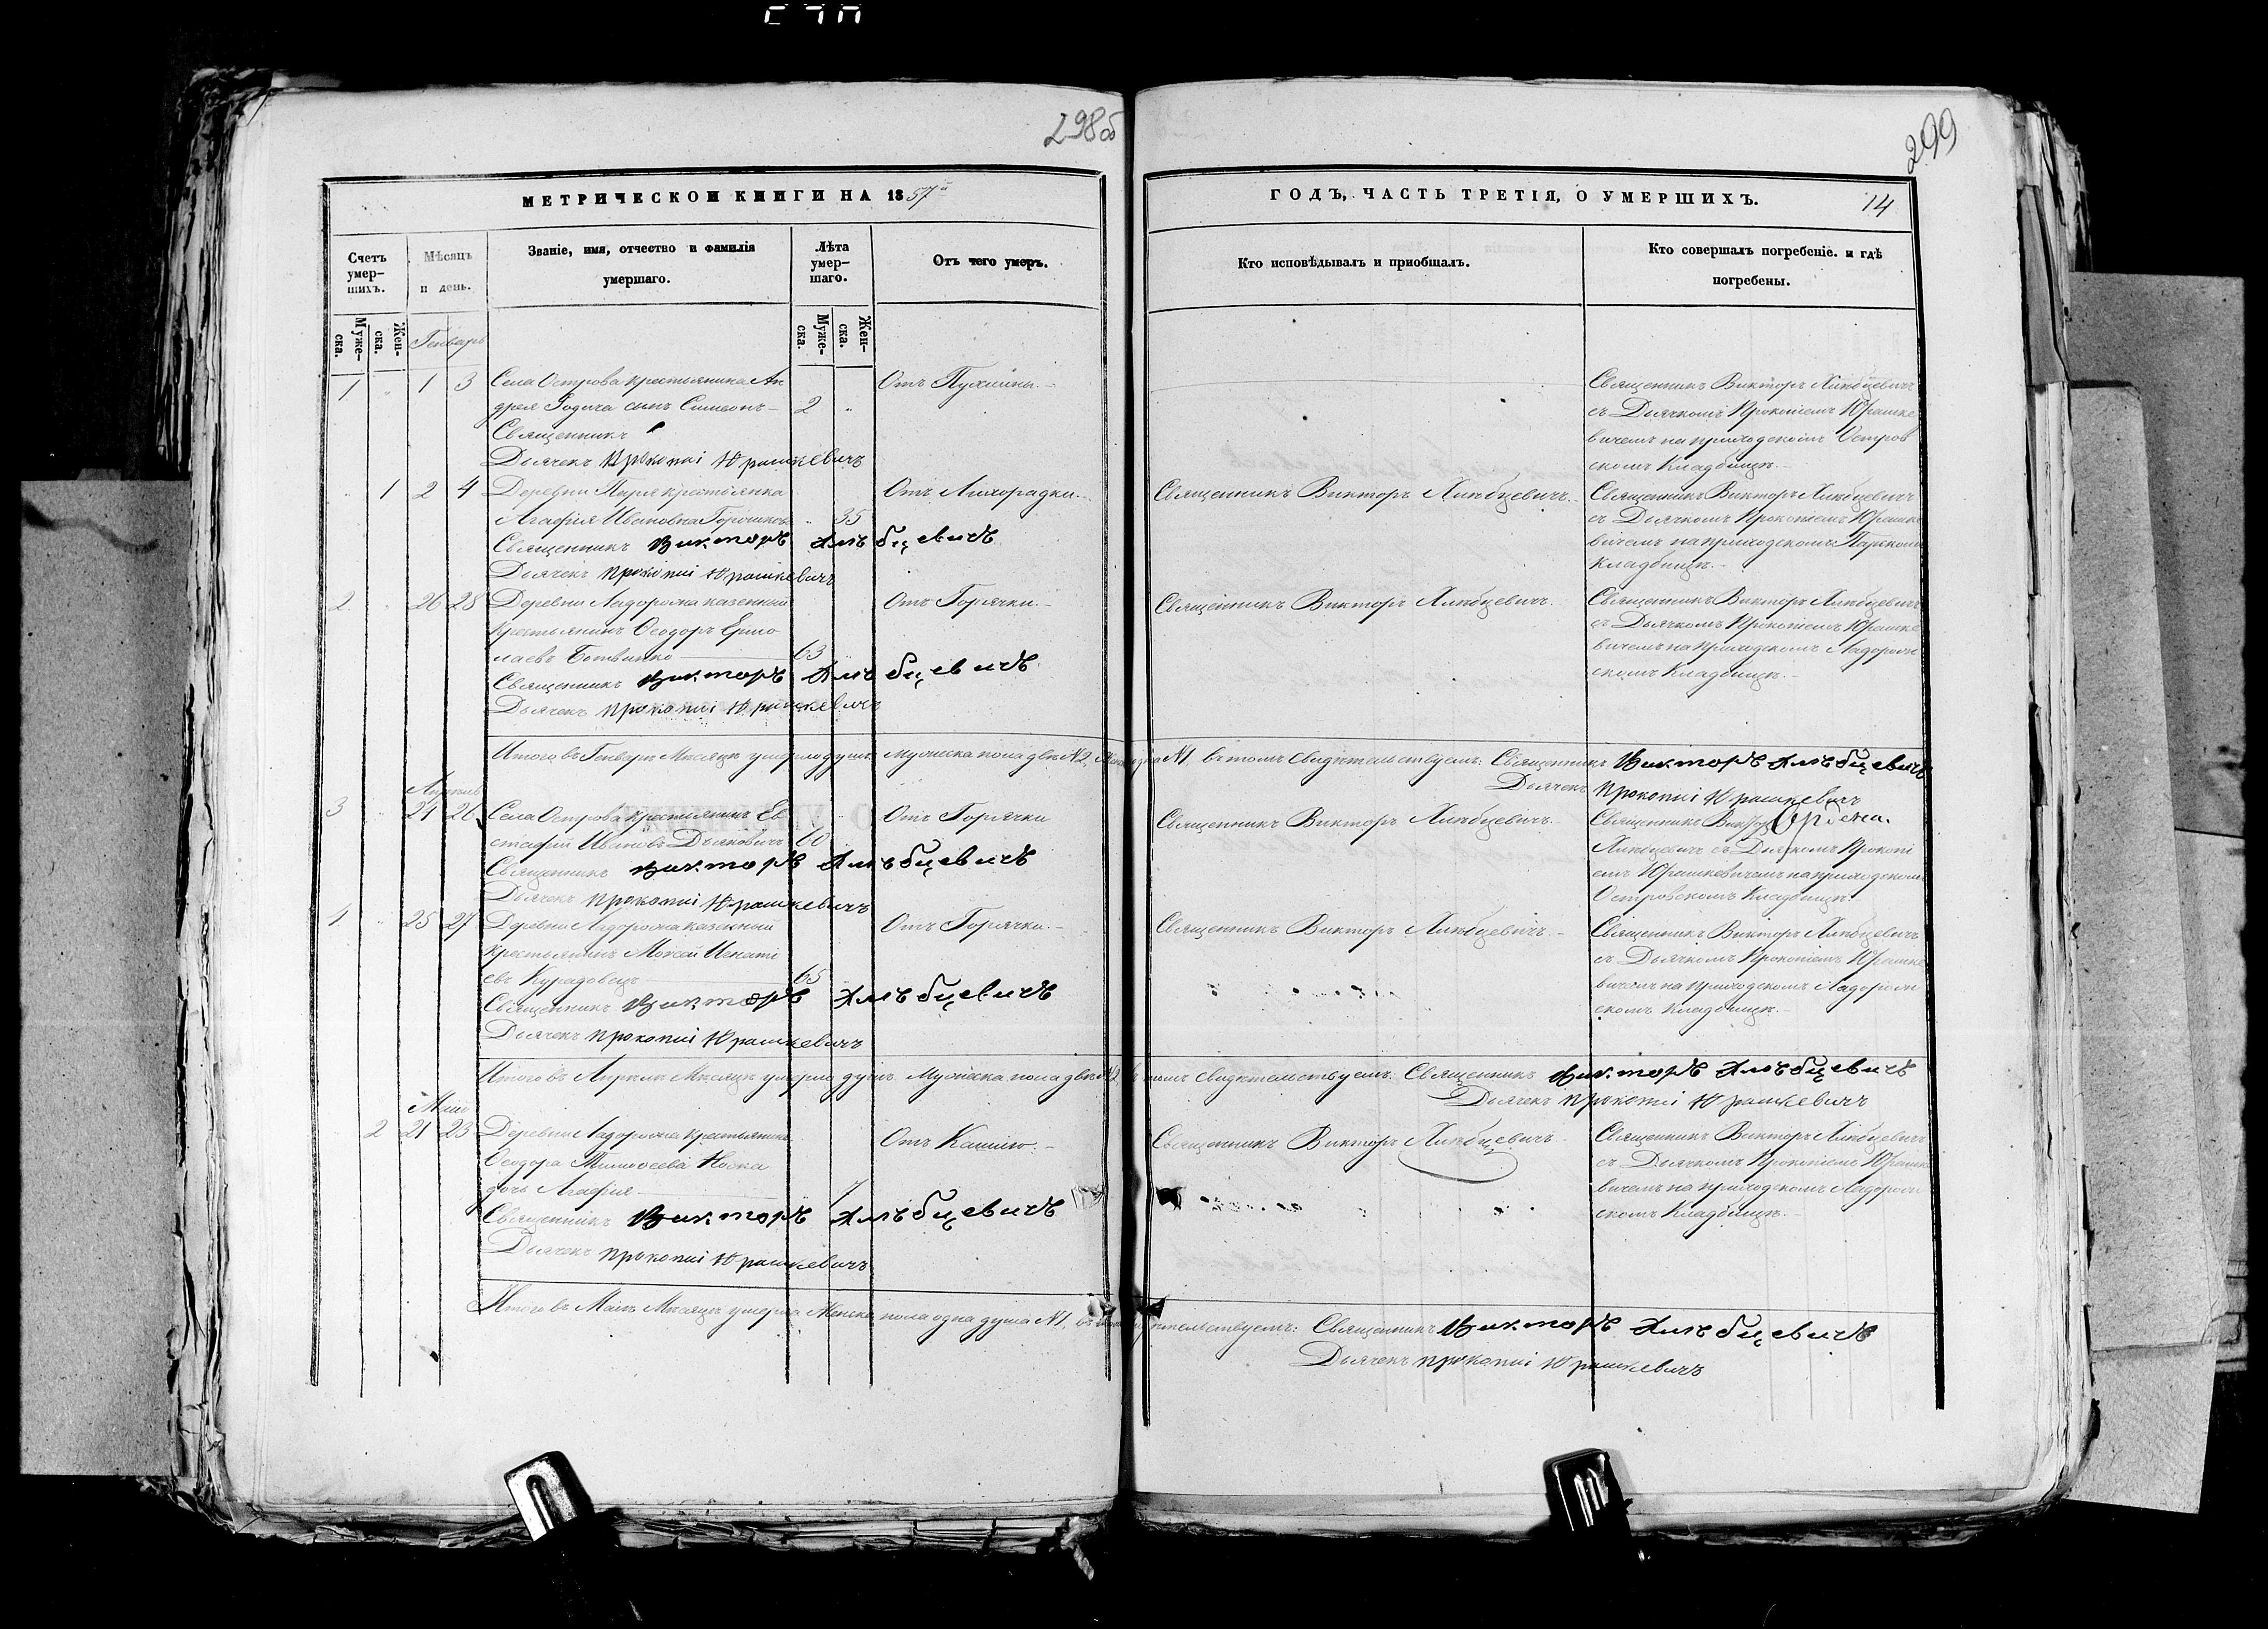 298об
299
МЕТРИЧЕСКОЙ КНИГИ НА 1857й
ГОДЪ, ЧАСТЬ ТРЕТІЯ, О УМЕРШИХЪ.
14
Счетъ умер-шихъ.
Мѣсяцъ и день.
Званіе, имя, отчество и фамилія умершаго.
Лѣта умер-шаго.
Отъ чего умеръ.
Кто исповѣдывалъ и пріобщалъ.
Кто совершалъ погребеніе. и гдѣ погребены.
Муже-ска.
Жен-ска.
Генварь
Муже-ска.
Жен-ска.
1 " 1 3 Села Острова крестьянина Ан
дрея Годича сынъ Симеонъ – 2 "
Отъ Пухлины. –
Священникъ
Дьячекъ Прокопій Юрашкевичъ
Священникъ Викторъ Хлѣбцевичъ
съ Дьячкомъ Прокопіемъ Юрашке
вичемъ на приходскомъ Остров
скомъ Кладбищѣ. –
" 1 2 4 Деревни Пиря крестьянка
Агафія Ивановна " 35
Отъ Лихорадки. –
Священникъ Викторъ Хлѣбцевичъ
Дьячекъ Прокопій Юрашкевичъ
Священникъ Викторъ Хлѣбцевичъ. –
Священникъ Викторъ Хлѣбцевичъ
съ Дьячкомъ Прокопіемъ Юрашке
вичемъ на приходскомъ
Кладбищѣ. –
2 " 26 28 Деревни Ладорожа казенный
крестьянинъ Ѳеодоръ Ермо
лаевъ Ботвинко 63
Отъ Горячки. –
Священникъ Викторъ Хлѣбцевичъ
Дьячекъ Прокопій Юрашкевичъ
Священникъ Викторъ Хлѣбцевичъ.
Священникъ Викторъ Хлѣбцевичъ
съ Дьячкомъ Прокопіемъ Юрашке
вичемъ на приходскомъ
скомъ Кладбищѣ. –
Итого въ Генварѣ Мѣсяцѣ умерло душъ мужеска пола двѣ №2, №1. въ томъ свидѣтельствуемъ: Священникъ Викторъ Хлѣбцевичъ
Дьячекъ Прокопій Юрашкевичъ
Апрель
3 " 24 26 Села Острова крестьянинъ Ев
стафій Ивановъ 60
Отъ Горячки
Священникъ Викторъ Хлѣбцевичъ
Дьячекъ Прокопій Юрашкевичъ
Священникъ Викторъ Хлѣбцевичъ. –
Священникъ Викторъ
Хлѣбцевичъ съ Дьячкомъ Прокопі
емъ Юрашкевичемъ на приходскомъ
Островскомъ Кладбищѣ.
4 " 25 27 Деревни Ладорожа казенный
крестьянинъ Моисей Игнаті
евъ 65
Отъ Горячки. –
Священникъ Викторъ Хлѣбцевичъ
Дьячекъ Прокопій Юрашкевичъ
Священникъ Викторъ Хлѣбцевичъ. –
Священникъ Викторъ Хлѣбцевичъ
съ Дьячкомъ Прокопіемъ Юрашке
вичемъ на приходскомъ
скомъ Кладбищѣ. –
Итого въ Апрелѣ Мѣсяцѣ умерло душъ Мужеска пола двѣ №2 въ томъ свидѣтельствуемъ. Священникъ Викторъ Хлѣбцевичъ
Дьячекъ Прокопій Юрашкевичъ
Май
" 2 21 23 Деревни Ладорожа крестьянина
Ѳеодора Тимоѳеева
дочь Агафія 7
Отъ Кашлю. –
Священникъ Викторъ Хлѣбцевичъ
Дьячекъ Прокопій Юрашкевичъ
Священникъ Викторъ Хлѣбцевичъ. –
Священникъ Викторъ Хлѣбцевичъ
съ Дьячкомъ Прокопіемъ Юрашке
вичемъ на приходскомъ
скомъ Кладбищѣ. –
Итого въ Маѣ Мѣсяцѣ умерла Женска пола одна душа №1. въ томъ свидѣтельствуемъ: Священникъ Викторъ Хлѣбцевичъ
Дьячекъ Прокопій Юрашкевичъ